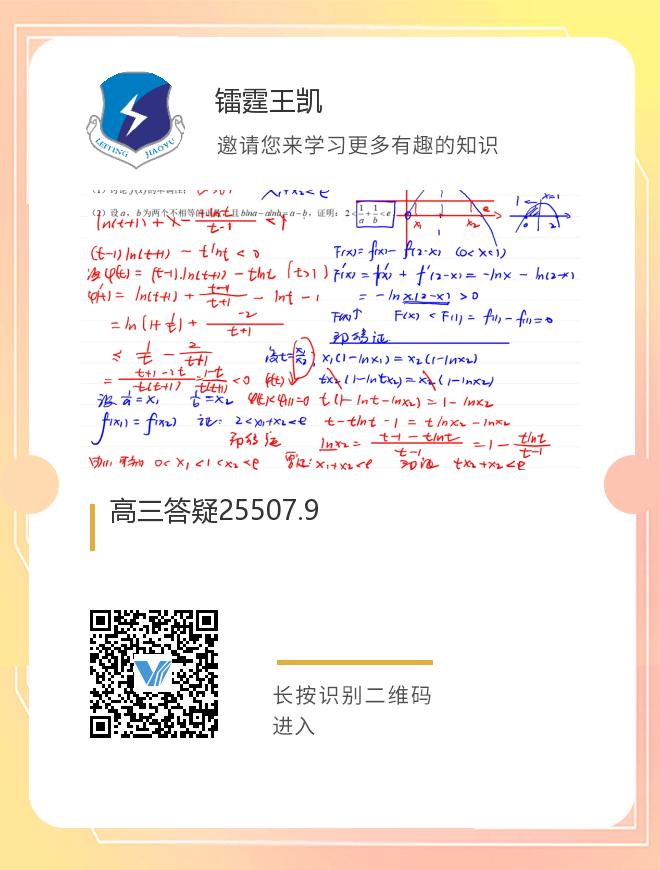 LEITING JIAOYU
镭霆王凯
邀请您来学习更多有趣的知识
x₁+x₂<e
(2) 设 a, b 为两个不相等的正数, 且 blna-alnb=a-b, 证明: 2<1/a+1/b<e
x=1
ln(t+1) + x - tlnt/(t-1) < 1
(t-1)ln(t+1) - tlnt < 0
设φ(t) = (t-1)·ln(t+1) - tlnt (t>1)
φ'(t) = ln(t+1) + (t-1)/(t+1) - lnt - 1
= ln(1+1/t) + -2/(t+1)
≤ 1/t - 2/(t+1)
= (t+1-2t)/(t(t+1)) = (1-t)/(t(t+1)) < 0
φ(t)<φ(1)=0
设 1/a = x₁ 1/b = x₂
f(x₁) = f(x₂) 证: 2<x₁+x₂<e
即结证
F(x) = f(x) - f(2-x) (0<x<1)
F'(x) = f'(x) + f'(2-x) = -lnx - ln(2-x)
= -ln x(2-x) > 0
F(x)↑ F(x) < F(1) = f(1) - f(1) = 0
即结证
设t=x₁/x₂, x₁(1-lnx₁) = x₂(1-lnx₂)
tx₂(1-lntx₂) = x₂(1-lnx₂)
t(1-lnt-lnx₂) = 1-lnx₂
t-tlnt-1 = tlnx₂-lnx₂
lnx₂ = (t-1-tlnt)/(t-1) = 1 - tlnt/(t-1)
0<x₁<1<x₂<e 要证: x₁+x₂<e 即证 tx₂+x₂<e
高三答疑25507.9
长按识别二维码
进入